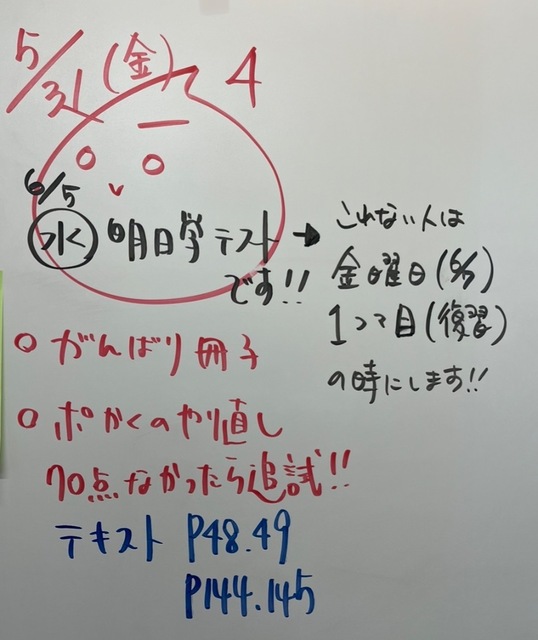 5/31(金) 4
6/5
㊌ 明日学テスト→
です!!
これない人は
金曜日(6/7)
1コマ目(復習)
の時にします!!
○ がんばり冊子
○ ポかくのやり直し
70点なかったら追試!!
テキスト P48.49
P144.145